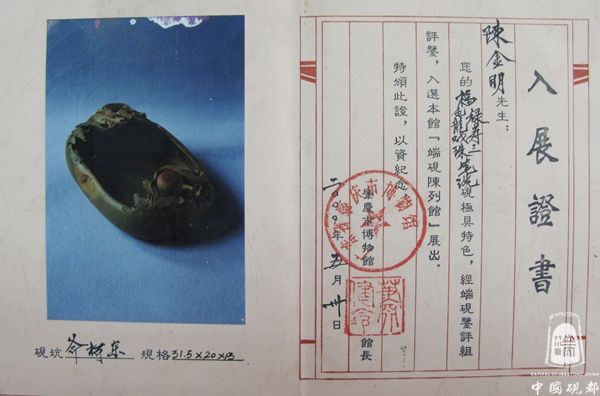 入展證書
陳金明先生：
您的福禄寿三色龍戏珠笔洗硯極具特色，經端硯鑒評組
評鑒，入選本館「端硯陳列館」展出。
特頒此證，以資紀念
肇慶市博物館 館長
二000年五月卅日
硯坑 斧柯东 規格31.5×20×13
中國硯都